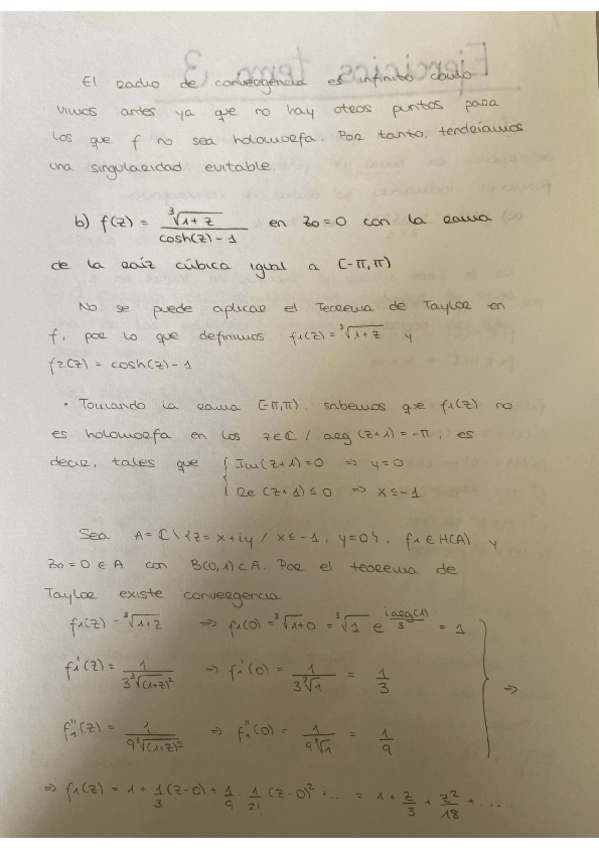 El radio de convergencia es infinito como
vimos antes ya que no hay otros puntos para
los que f no sea holomorfa. Por tanto, tendríamos
una singularidad evitable
b) f(z) = ∛(1+z) / (cosh(z) - 1) en z₀=0 con la rama
de la raíz cúbica igual a [-π,π)
No se puede aplicar el Teorema de Taylor en
f, por lo que definimos f₁(z) = ∛(1+z) y
f2(z) = cosh(z) - 1
• Tomando la rama [-π,π). sabemos que f₁(z) no
es holomorfa en los z∈ℂ / arg (z+1) = -π, es
decir, tales que { Im(z+1)=0 => y=0
Re(z+1)≤0 => x≤-1
Sea A = ℂ\{z=x+iy / x≤-1, y=0}, f₁∈H(A) y
z₀=0 ∈ A con B(0,1)⊂A. Por el teorema de
Taylor existe convergencia
f₁(z) = ∛(1+z) => f₁(0) = ∛(1+0) = ∛1 e^(i arg(1)/3) = 1
f₁'(z) = 1/(3∛(1+z)²) => f₁'(0) = 1/(3∛1) = 1/3 =>
f₁''(z) = => f₁''(0) = = 1/9
=> f₁(z) = 1 + 1/3 (z-0) + 1/9 · 1/2! (z-0)² + ... = 1 + z/3 + z²/18 + ....